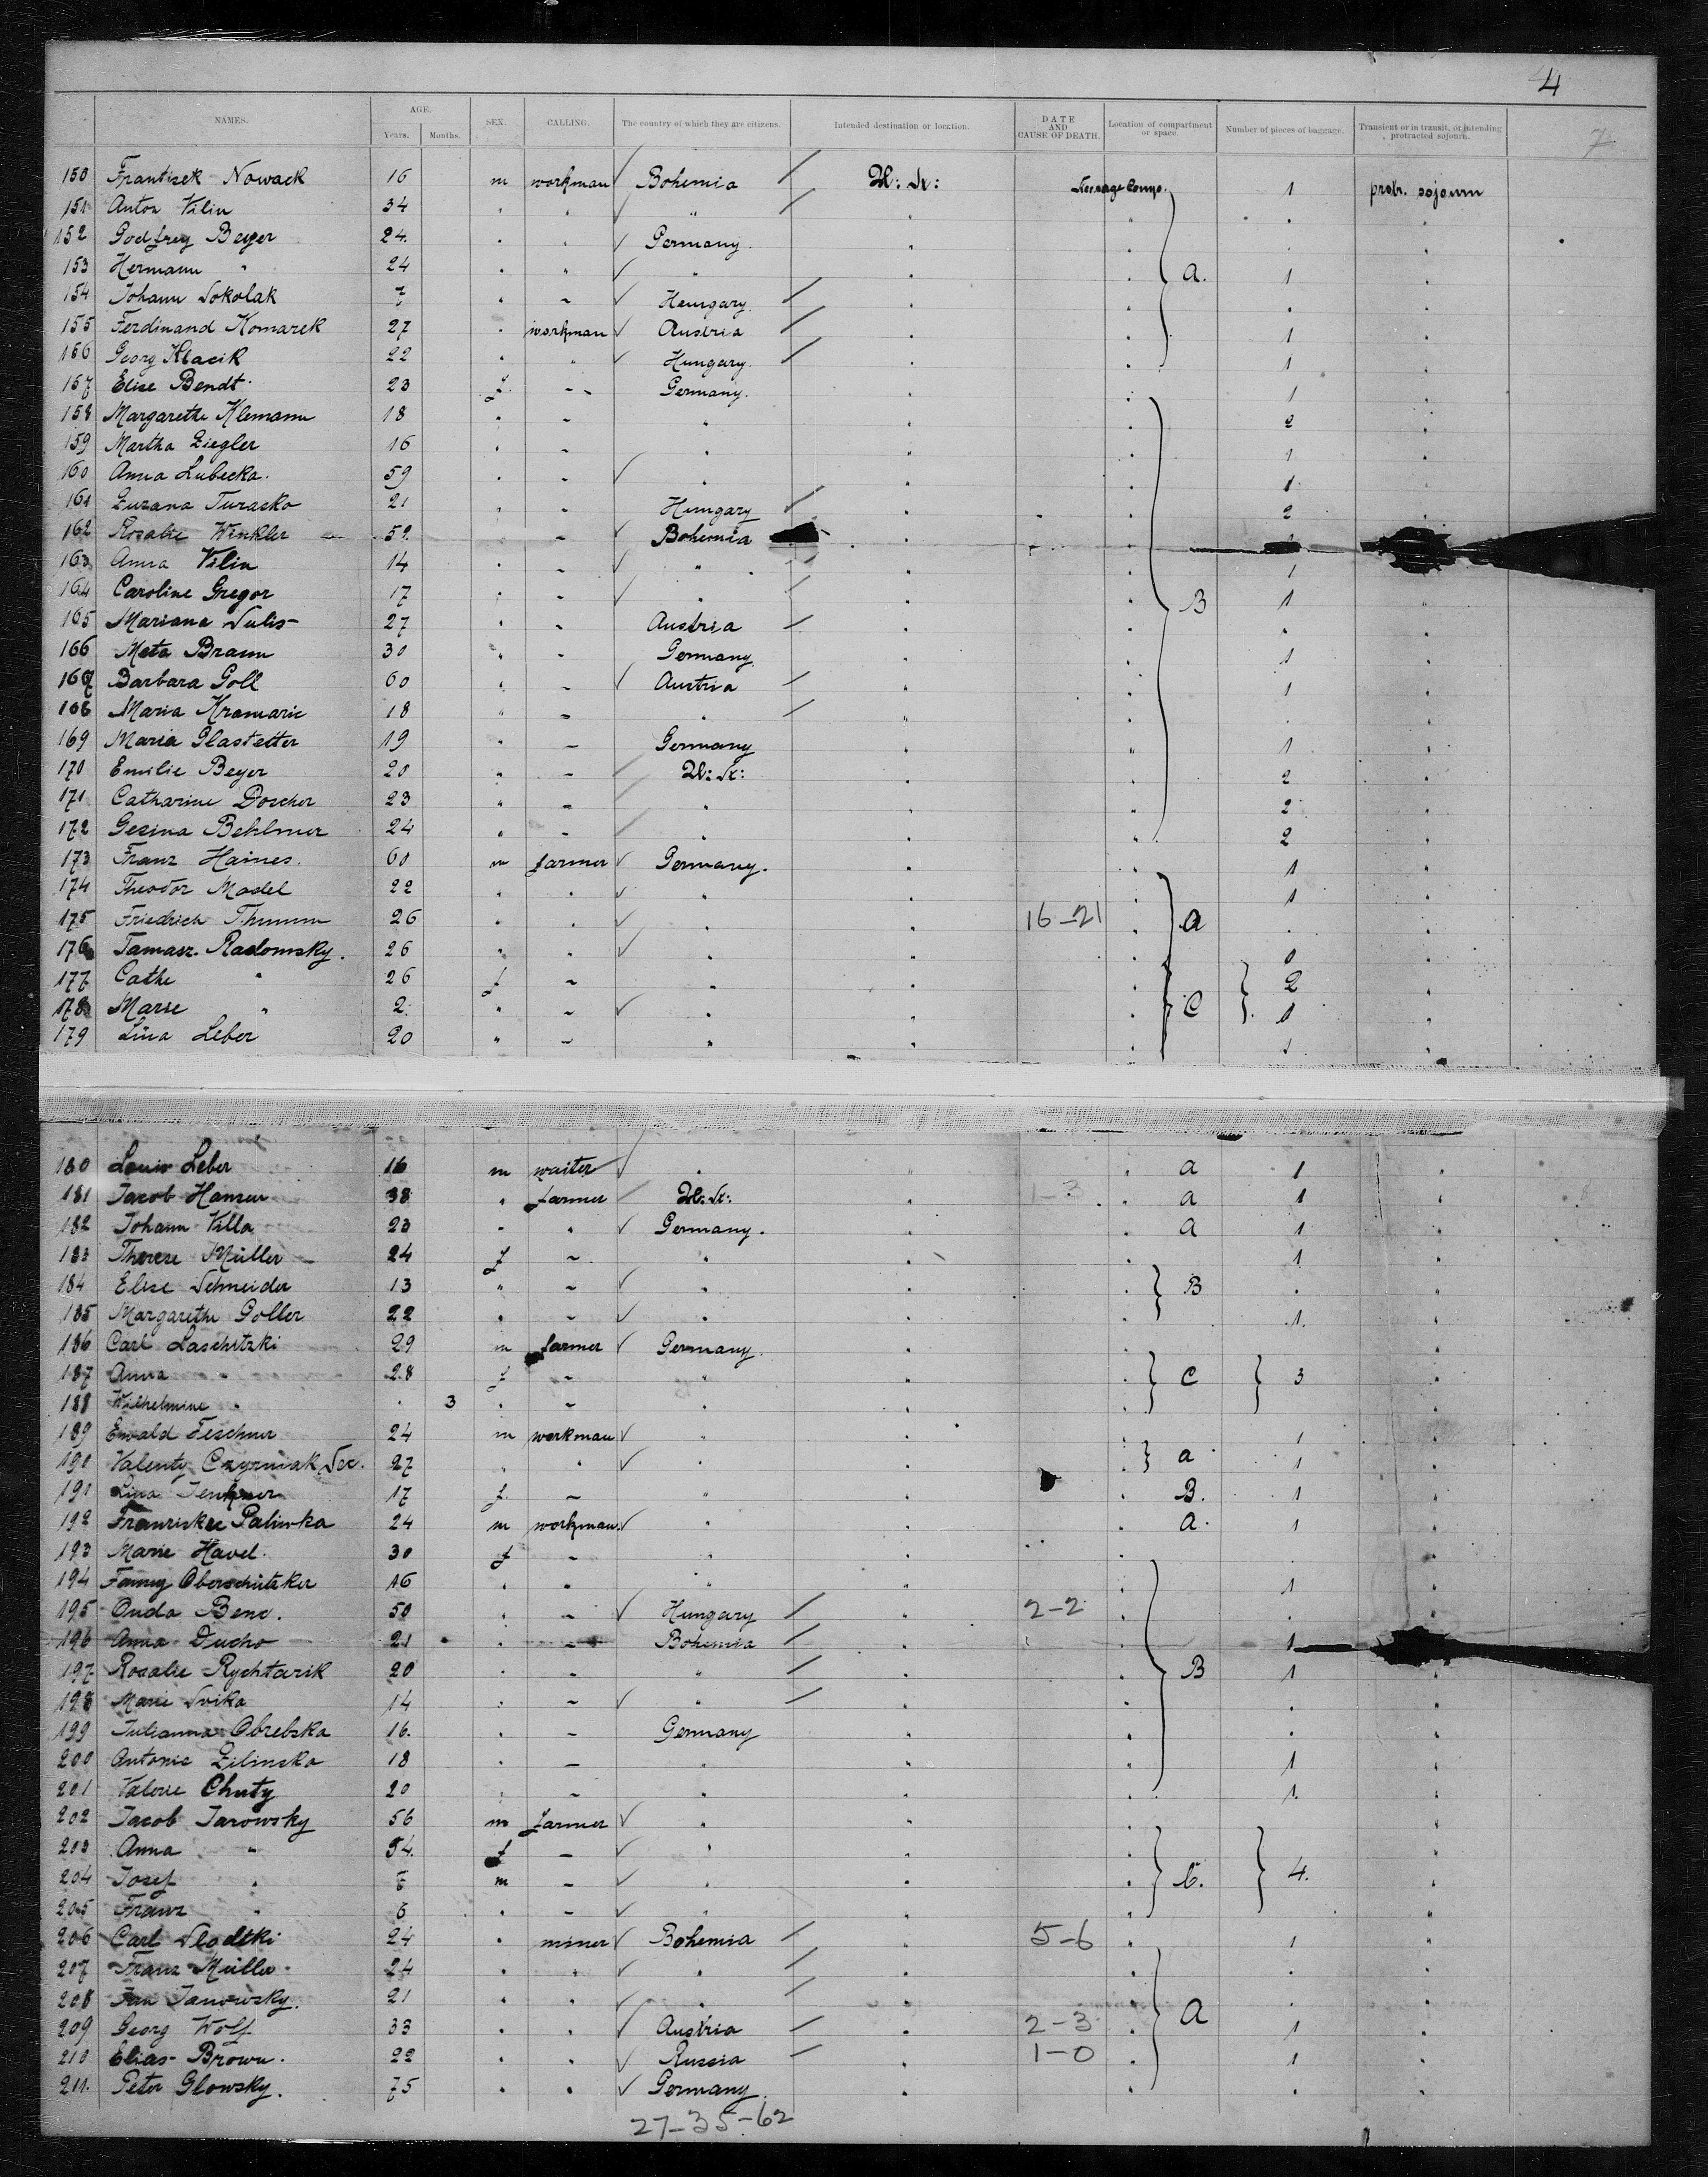 4
7
NAMES. AGE. Years. Months. SEX. CALLING. The country of which they are citizens. Intended destination or location. DATE AND CAUSE OF DEATH. Location of compartment or space. Number of pieces of baggage. Transient or in transit, or intending protracted sojourn.
150 Frantisek Nowack 16 m workman Bohemia U: St: Steerage Comp. 1 protr. sojourn
151 Anton Vilin 34 " " "
152 Godfrey Beyer 24 " " Germany
153 Hermann " 24 " " " a. 1
154 Johann Sokolak 7 " - Hungary
155 Ferdinand Komarek 27 " workman Austria 1
156 Georg Klacik 22 " " Hungary 1
157 Elise Bendt 23 f - Germany 1
158 Margarethe Klemann 18 " - " 2
159 Martha Ziegler 16 " - " 1
160 Anna Lubecka 59 " - " 1
161 Zuzana Turasko 21 " - Hungary 2
162 Rosalie Winkler 52 - Bohemia
163 Anna Vilin 14 " - " 1
164 Caroline Gregor 17 " - " B 1
165 Mariana Sulis 27 " - Austria
166 Meta Braun 30 " - Germany 1
167 Barbara Goll 60 " - Austria 1
168 Maria Kramaric 18 " - "
169 Maria Glastetter 19 " - Germany 1
170 Emilie Beyer 20 " - U: St: 2
171 Catharine Dorcher 23 " - " 2
172 Gesina Behlmer 24 " - " 2
173 Franz Haines 60 m farmer Germany 1
174 Theodor Madel 22 " " " 1
175 Friedrich Thumm 26 " " " 16-21 a
176 Tamasz Radomsky 26 " " "
177 Cathe " 26 f - " 2
178 Marie " 2 " - " C 1
179 Lina Leber 20 " - " 1
180 Louis Leber 16 m waiter " a 1
181 Jacob Hansen 38 " farmer U: St: a 1
182 Johann Villa 23 " " Germany a 1
183 Therese Müller 24 f - " 1
184 Elise Schneider 13 " - " B
185 Margarethe Goller 22 " - " 1
186 Carl Laschitzki 29 m farmer Germany
187 Anna " 28 f - " C 3
188 Wilhelmine " 3 " - "
189 Ewald Feschner 24 m workman " 1
190 Valenty Czyzniak 27 " " " a 1
191 Lina 17 f - " B. 1
192 Paliwka 24 m workman " a 1
193 Marie Havel 30 f - "
194 Fanny Oberschützker 16 " - " 1
195 Onda Benc 50 " - Hungary 2-2
196 Anna Ducho 21 " - Bohemia 1
197 Rosalie Rychtarik 20 " - " B 1
198 Marie Svika 14 " - "
199 Julianna Obrebska 16 " - Germany
200 Antonie Zilinska 18 " - " 1
201 Valerie Chuty 20 " - " 1
202 Jacob Jarowsky 56 m farmer "
203 Anna " 54 f - "
204 Josef " m - " C. 4.
205 Franz " 6 " - "
206 Carl Slodtki 24 " miner Bohemia 5-6 1
207 Franz Müller 24 " " "
208 Jan Janowsky 21 " " " A
209 Georg Wolf 33 " " Austria 2-3 1
210 Elias Brown 22 " " Russia 1-0 1
211. Peter Glowsky 75 " " Germany
27-35-62